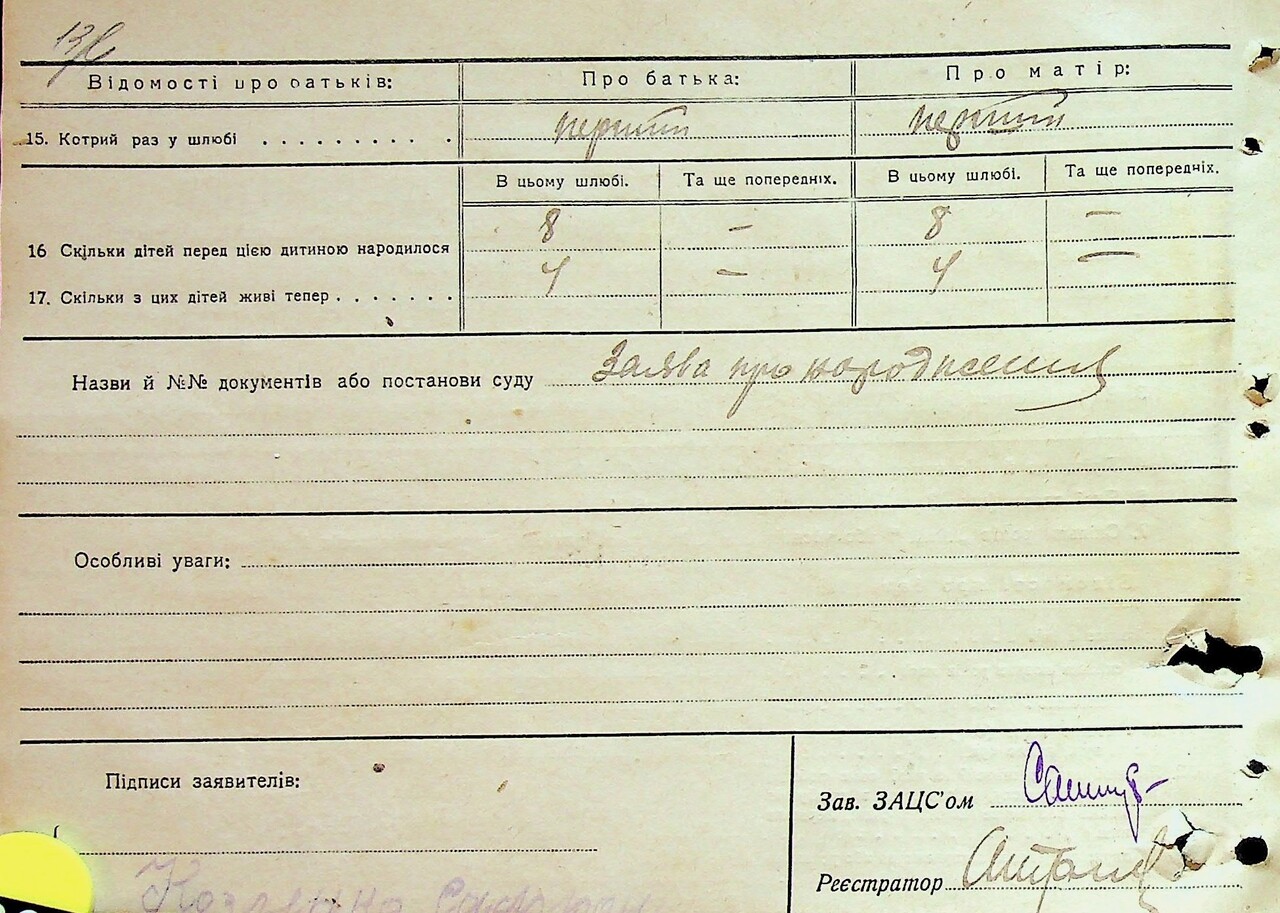 Відомості про батьків: Про батька: Про матір:
15. Котрий раз у шлюбі . . . . . . . . . . перший перший
В цьому шлюбі. Та ще попередніх. В цьому шлюбі. Та ще попередніх.
16 Скільки дітей перед цією дитиною народилося 8 — 8 —
17. Скільки з цих дітей живі тепер . . . . . . . 4 — 4 —
Назви й №№ документів або постанови суду Заява про народження
Особливі уваги:
Підписи заявителів:
Зав. ЗАЦС'ом
Реєстратор